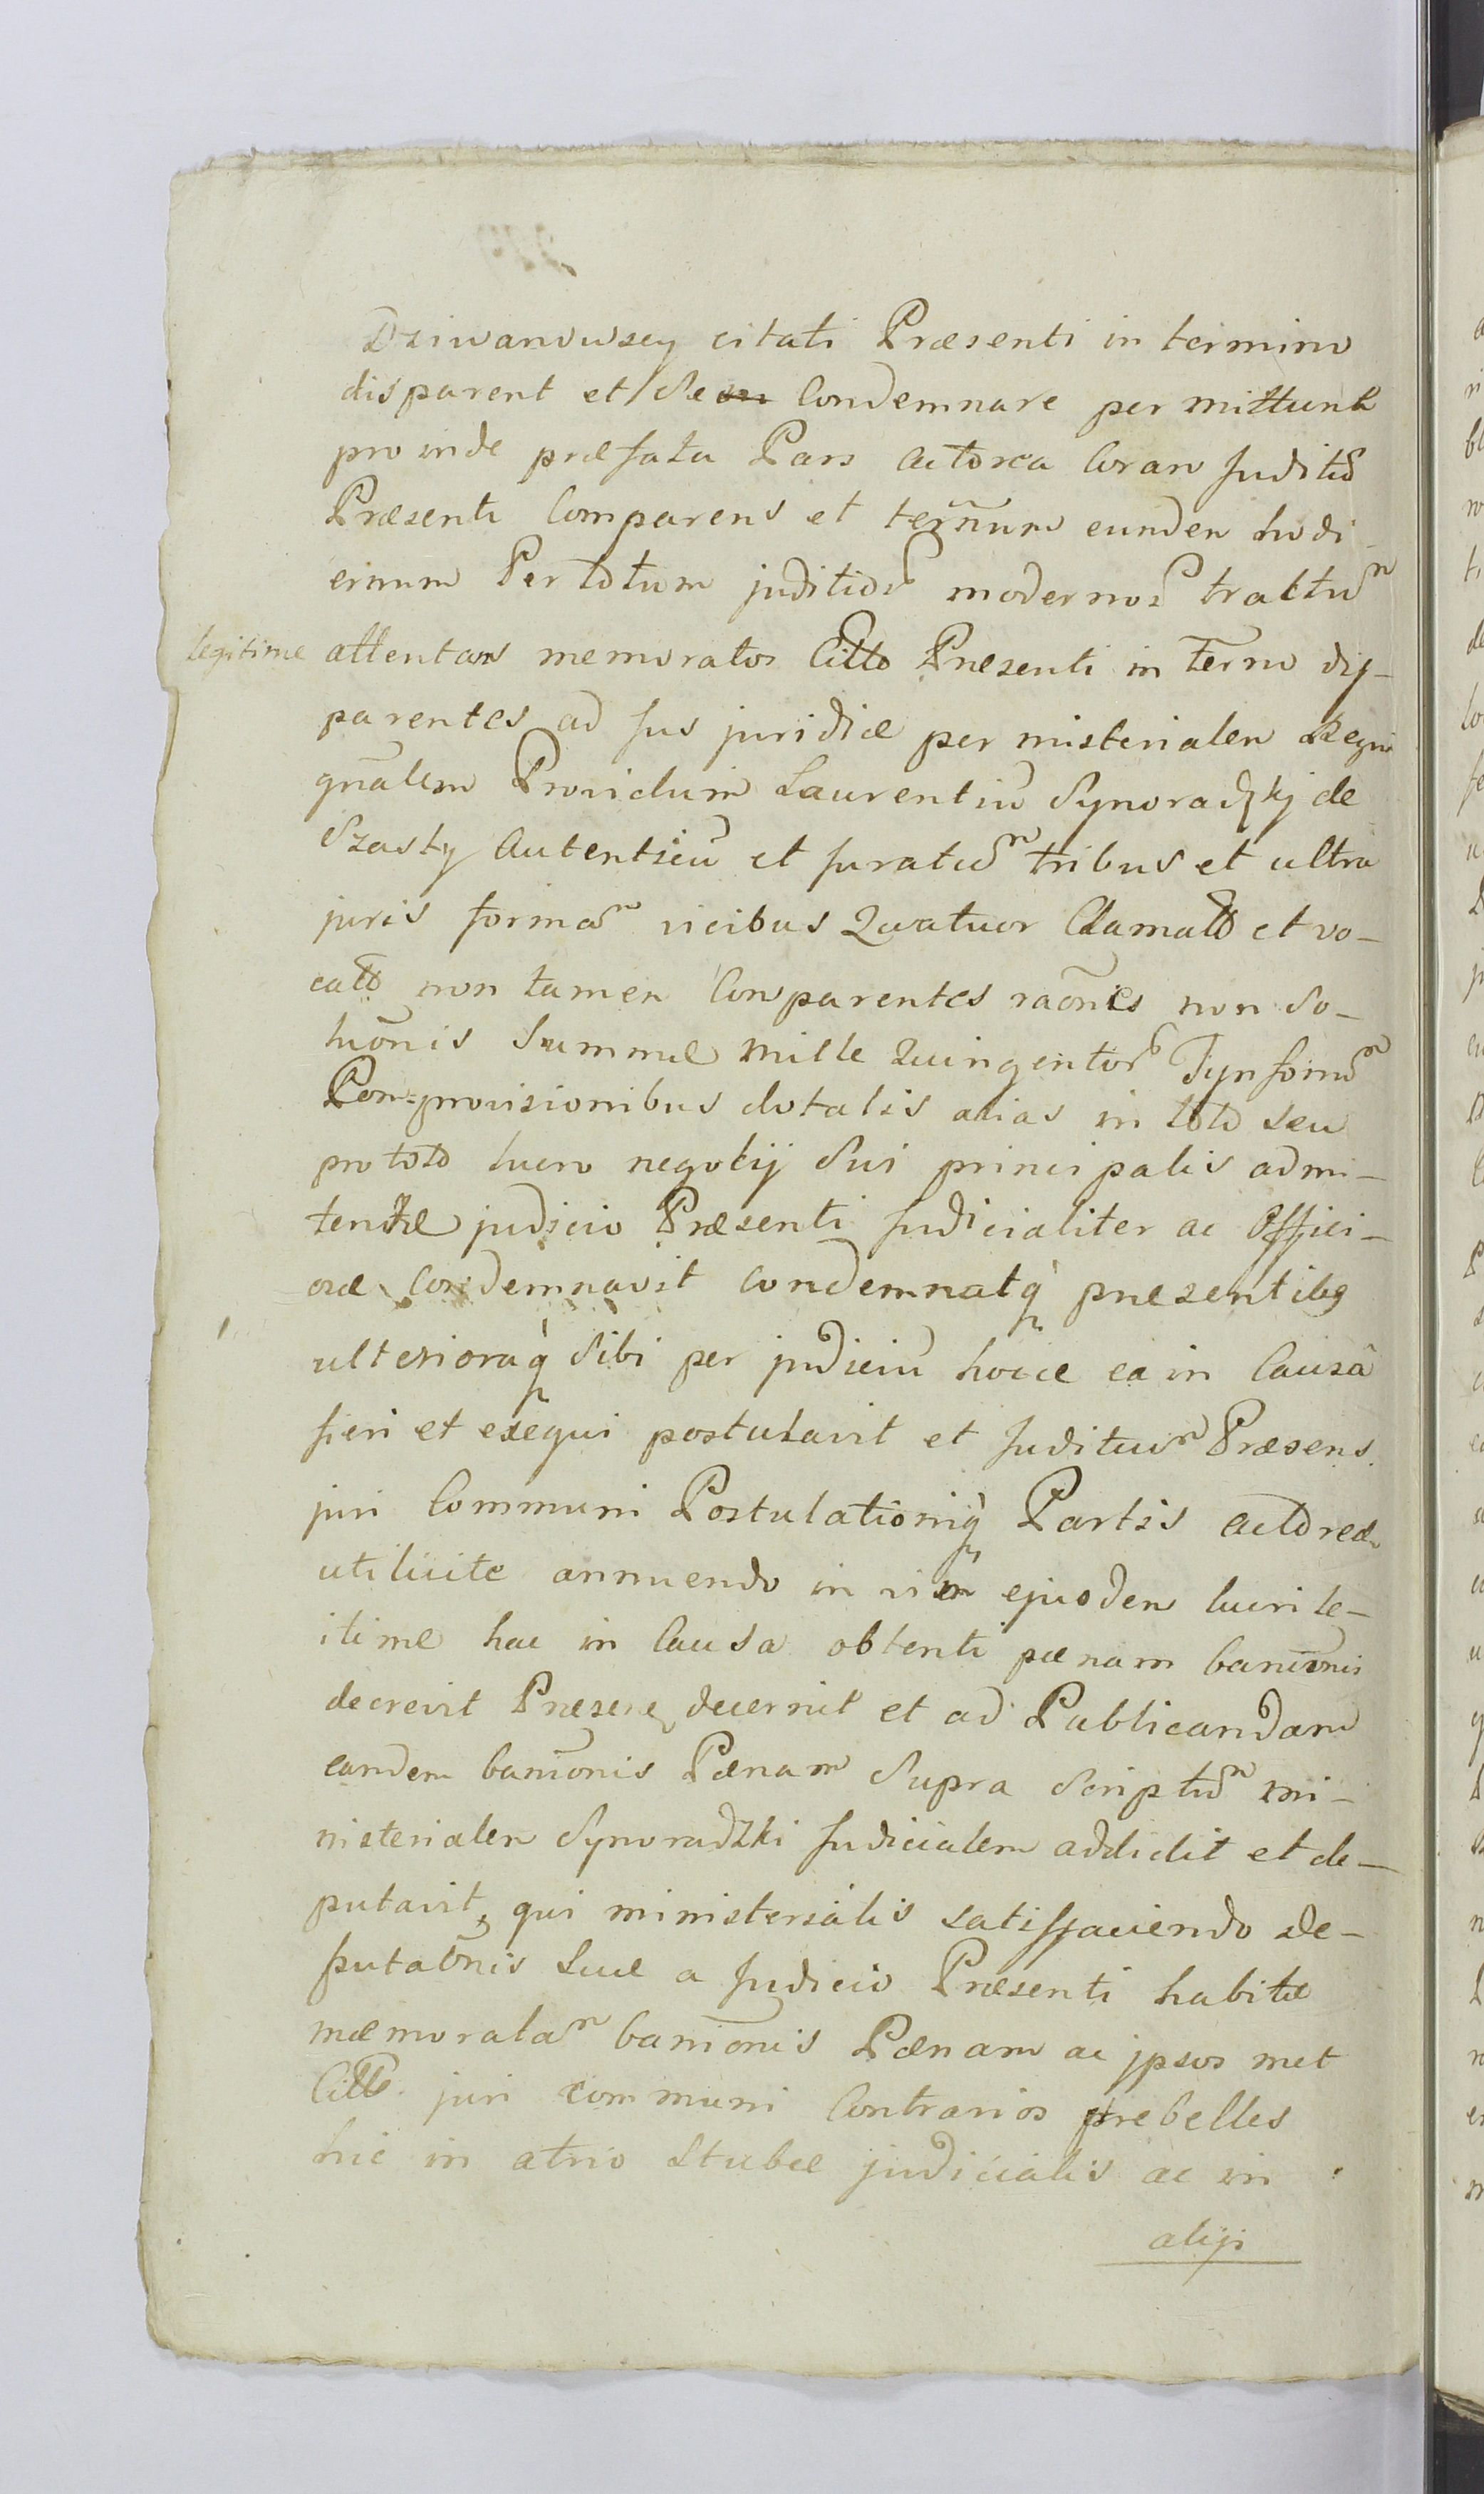 Dziwanowscy citati Præsenti in termino
disparent et se Condemnare permittunt
proinde præfata Pars actorea Coram Juditio
Præsenti Comparens et terñum eundem hodi-
ernum Per totum juditior modernor tractum
legitime attentans memoratos Citto Præsenti in terno dis-
parentes ad Jus juridice per misterialem Regni
gñalem Providum Laurentiũ Synoradzkj de
Szasty Autenticũ et Juratum tribus et ultra
juris formam vicibus Quatuor Clamato et vo-
cato non tamen Comparentes raõnes non So-
luõnis Summæ Mille Quingentor Tynfonum
Pro provisionibus dotalis alias in toto seu
pro toto lucro negotij Sui principalis admi-
tendæ judicio Præsenti Judicialiter ac Offici-
ose Condemnavit Condemnatq præsentibg
ulterioraq Sibi per judiciũ hocce ea in Causâ
fieri et exequi postulavit et Juditium Præsens
juri Communi Postulationiq Partis actoreæ
uti licite annuendo in vim ejusdem lucri le-
itime hac in Causa obtenti pænam baniõnis
decrevit decernit et ad Publicandam
eandem baniõnis Pænam Supra Scriptum mi-
nisterialem Synoradzki Judicialem addidit et de-
putavit, qui ministerialis satisffaciendo de-
putaõnis Suæ a Judicio Præsenti habitæ
mæmoratam baniõnis Pænam ac jpsos met
Citto juri communi Contrarios rebelles
hic in atrio Stubæ judicialis ac in
alijs